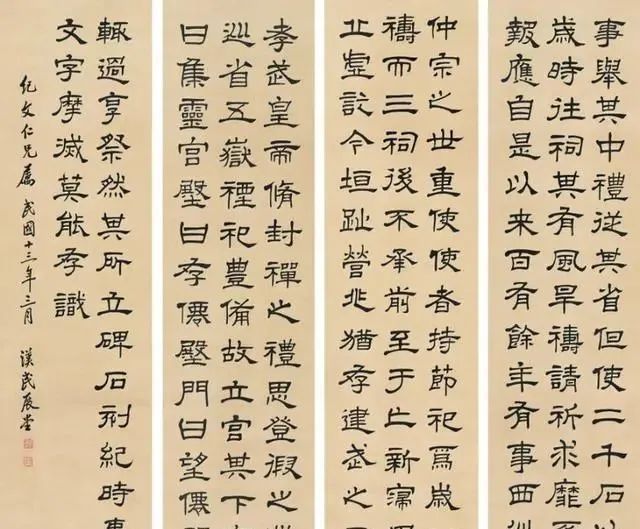 事舉其中禮從其省但使二千石以
歲時往祠其有風旱禱請祈求靡
報應自是以來百有餘年有事西巡
仲宗之世重使使者持節祀焉歲
禱而三祠後不承前至于亡新寖用
丘虛訖今垣趾營兆猶存建武之
孝武皇帝脩封禪之禮思登徦之
巡省五嶽禋祀豐備故立宮其下
曰集靈宮壂曰存僊壂門曰望僊
輒過享祭然其所立碑石刻紀時事
文字摩滅莫能存識
紀文仁兄屬 民國十三年三月 漢民展堂